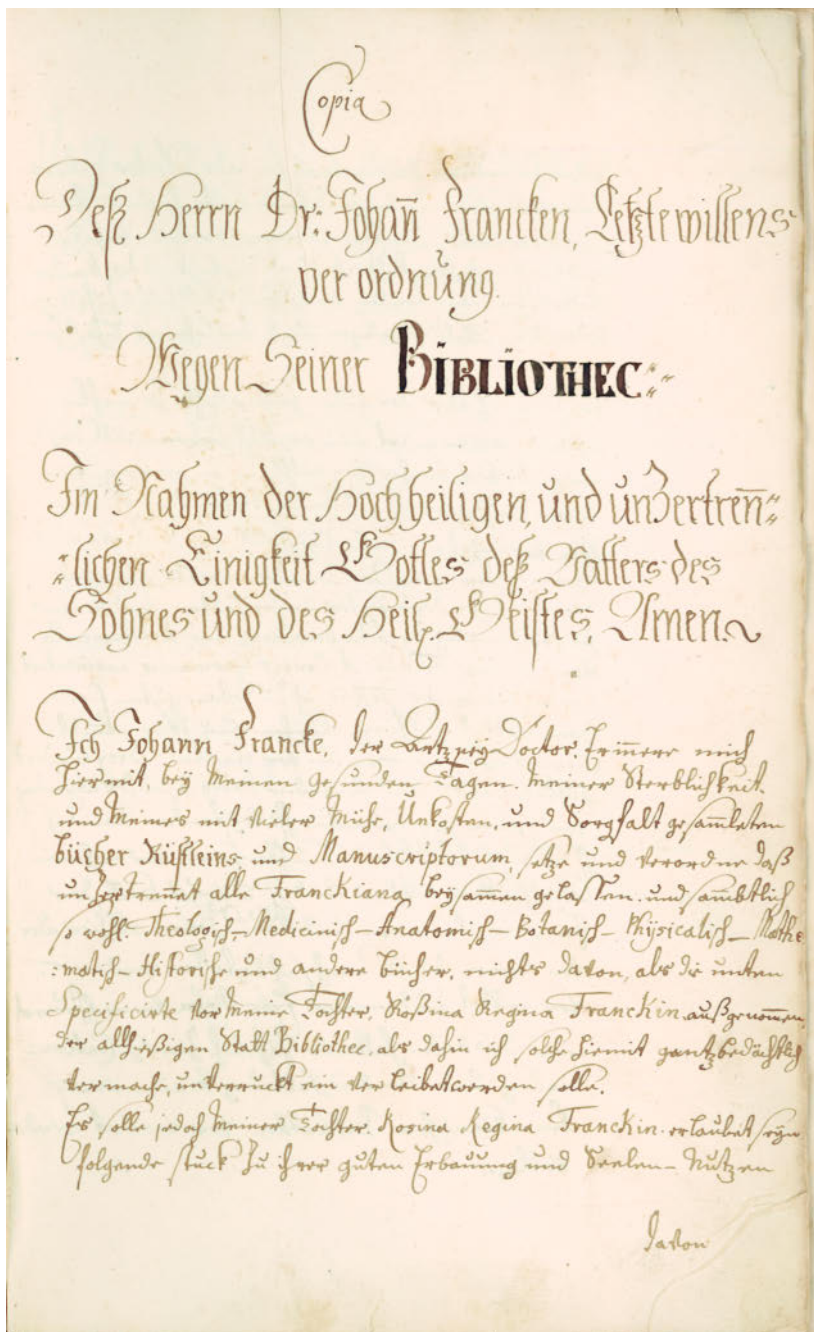 Copia
Deß Herrn Dr: Johañ Francken, Letzte willens
ver ordnung.
Wegen Seiner BIBLIOTHEC.
Im Nahmen der Hochheiligen, und unzertreñ=
=lichen Einigkeit Gottes deß Vatters des
Sohnes und des Heil. Geistes, Amen.
Ich Johann Francke, der Artzney Doctor, Eriñere mich
hiermit, bey Meinen gesunden Tagen. Meiner Sterblichkeit.
und Meines mit vieler Mühe, Unkosten, und Sorgfalt gesam̄leten
bücher und Manuscriptorum, setze und verordne daß
unzertrennet alle Franckiana beysam̄en gelassen. und sam̄btlich
so wohl. Theologisch- Medicinisch- Anatomisch- Botanisch- Physicalisch- Mathe
=matisch- Historische und andere bücher, nichts davon, als die unten
Specificirte vor Meine Tochter, Roßina Regina Franckin außgenom̄en,
der allhießigen Statt Bibliothec, als dahin ich solche hiemit gantz bedächtlich
vermache, unverruckt ein ver leibet werden solle.
Es solle jedoch Meiner Tochter. Rosina Regina Franckin erlaubet seyn
folgende stuck zu ihrer guten Erbauung und Seelen- Nutzen
davon